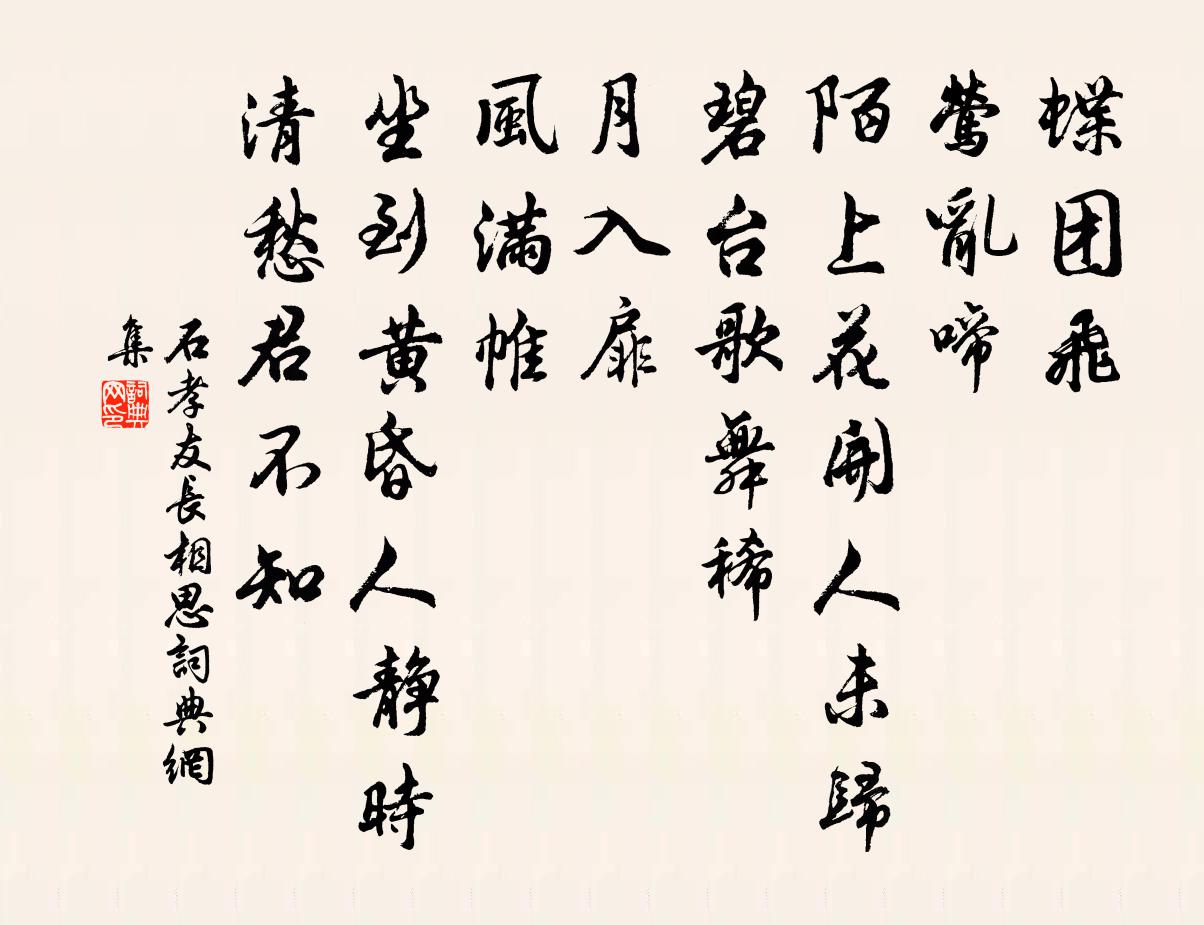 蝶团飛
鶯亂啼
陌上花開人未歸
碧台歌舞稀
月入扉
風滿帷
坐到黄昏人静時
清愁君不知
石孝友長相思詞典網
集
詞典網印